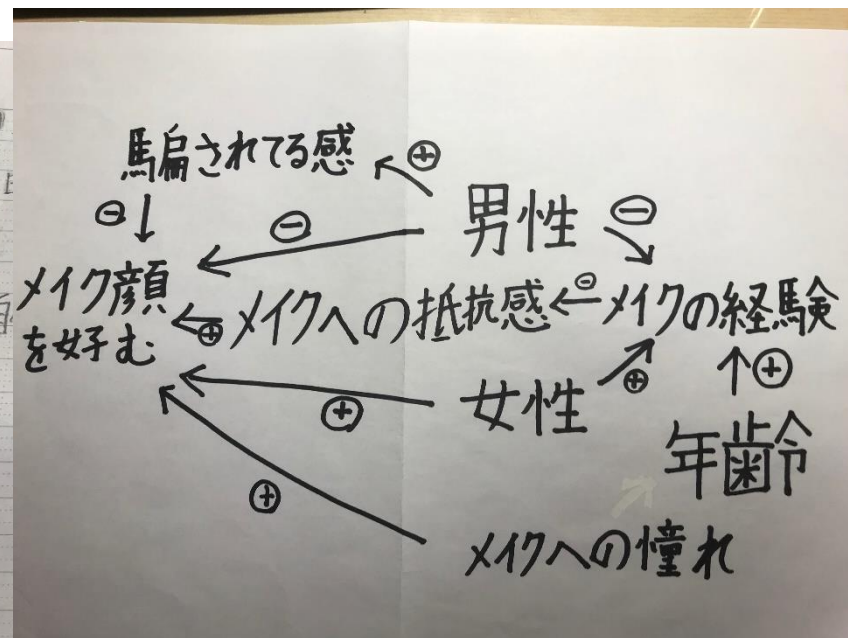 騙されてる感
⊕
男性
⊖
⊖
⊖
メイク顔
を好む
⊕
メイクへの抵抗感
⊖
メイクの経験
⊕
女性
⊕
⊕
年齢
⊕
メイクへの憧れ